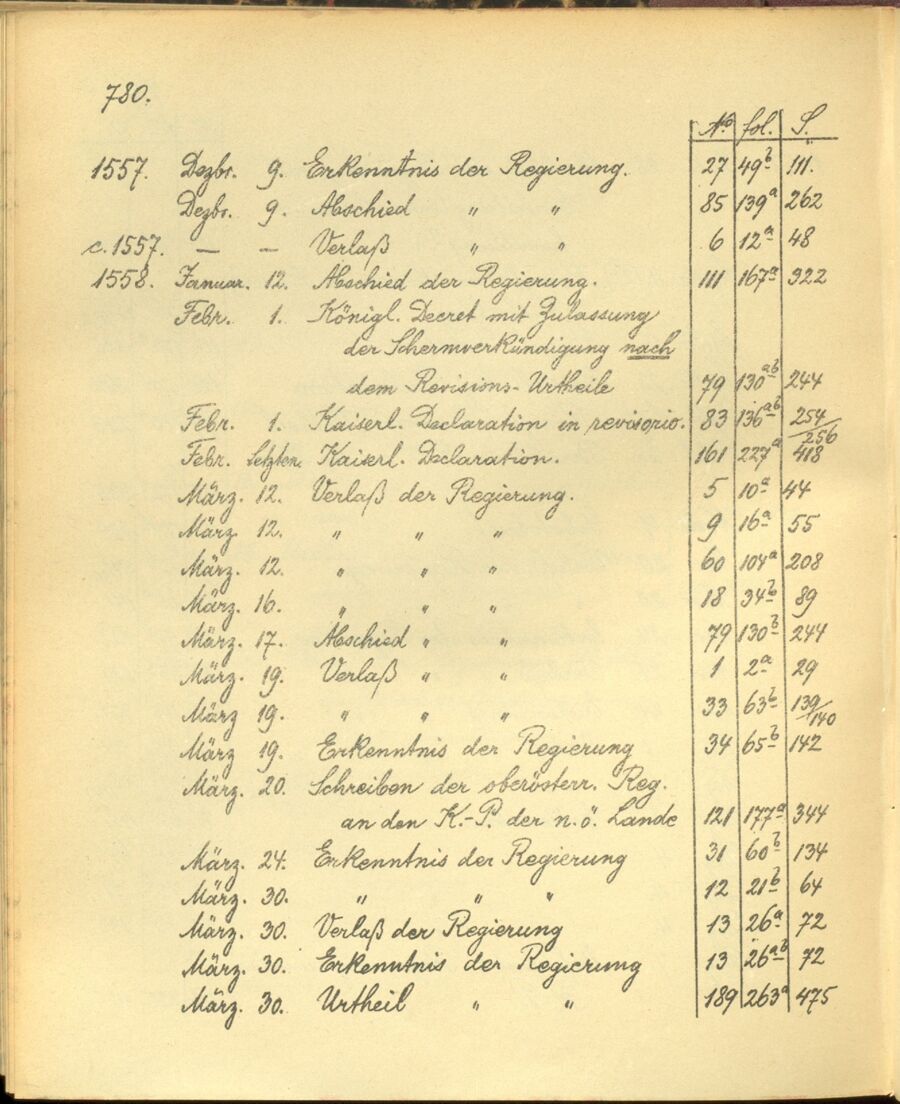 780.
No fol. S.
1557. Dezbr. 9. Erkenntnis der Regierung. 27 49b 111.
Dezbr. 9. Abschied " " 85 139a 262
c. 1557. — — Verlaß " " 6 12a 48
1558. Januar. 12. Abschied der Regierung. 111 167a 322
Febr. 1. Königl. Decret mit Zulassung
der Schermverkündigung nach
dem Revisions-Urtheile 79 130ab 244
Febr. 1. Kaiserl. Declaration in revisorio. 83 136ab 254/256
Febr. letzten. Kaiserl. Declaration. 161 227a 418
März. 12. Verlaß der Regierung. 5 10a 44
März. 12. " " " 9 16a 55
März. 12. " " " 60 104a 208
März. 16. " " " 18 34b 89
März. 17. Abschied " " 79 130b 244
März. 19. Verlaß " " 1 2a 29
März 19. " " " 33 63b 139/140
März 19. Erkenntnis der Regierung 34 65b 142
März. 20. Schreiben der oberösterr. Reg.
an den K.-P. der n.ö. Lande 121 177a 344
März. 24. Erkenntnis der Regierung 31 60b 134
März. 30. " " " 12 21b 64
März. 30. Verlaß der Regierung 13 26a 72
März. 30. Erkenntnis der Regierung 13 26ab 72
März. 30. Urtheil " " 189 263a 475